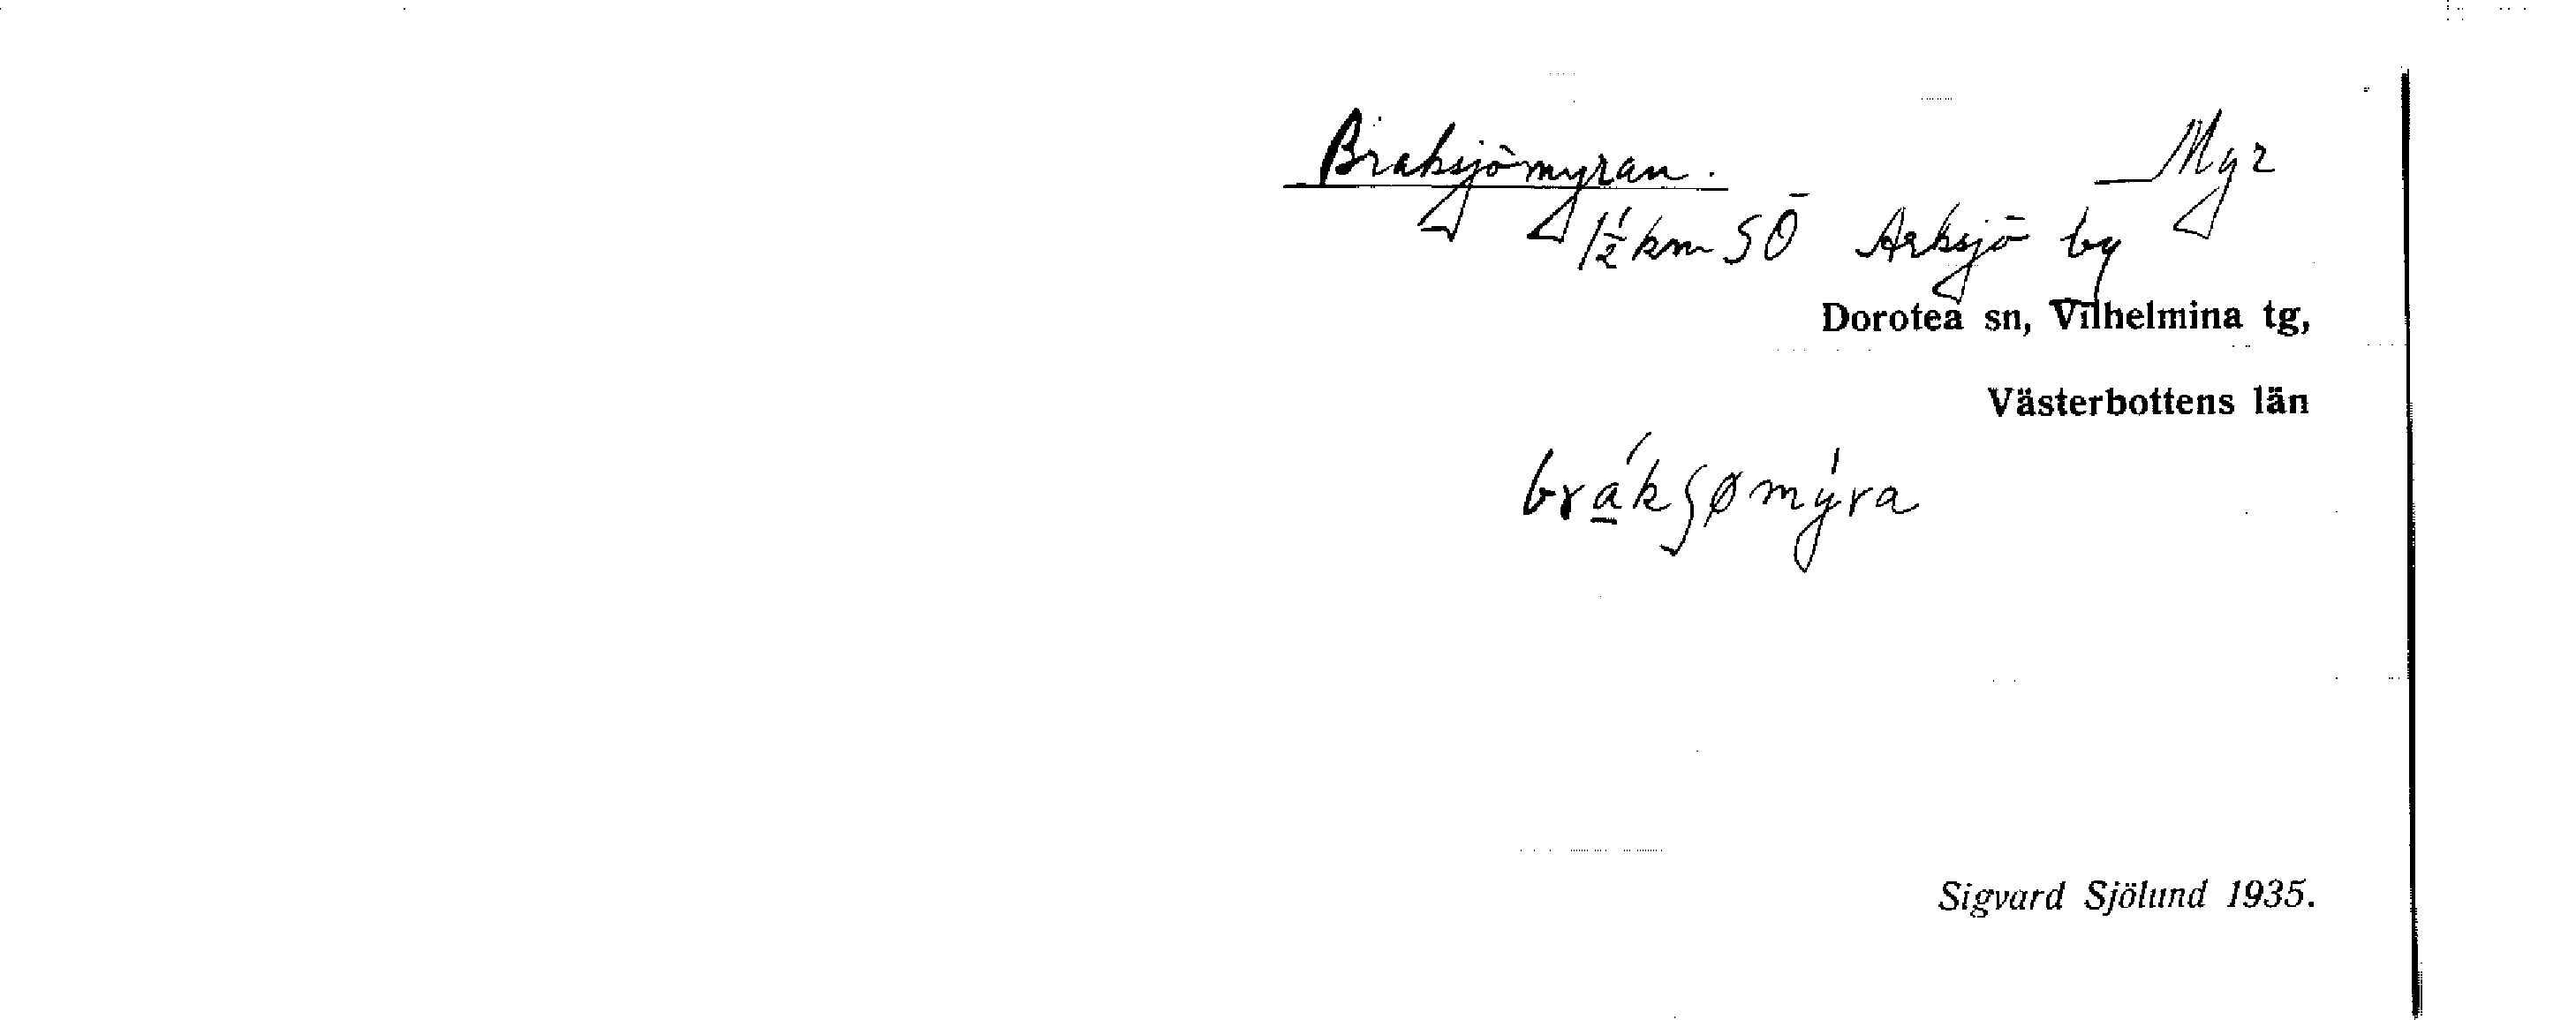 Braksjömyran. Myr
1½ km SÖ Arksjö by
Dorotea sn, Vilhelmina tg,
Västerbottens län
brákʃømýra
Sigvard Sjölund 1935.